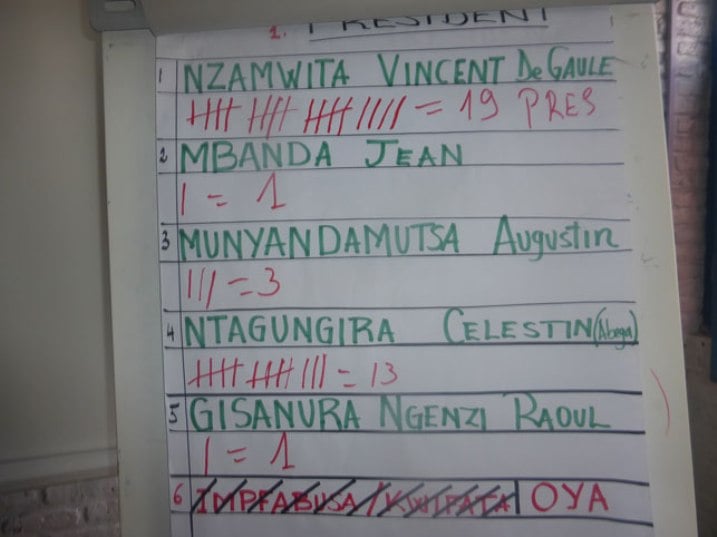 1. PRESIDENT
1 NZAMWITA VINCENT De GAULE
卌 卌 卌 //// = 19 PRES
2 MBANDA JEAN
| = 1
3 MUNYANDAMUTSA Augustin
||| = 3
4 NTAGUNGIRA CELESTIN (Abega)
卌 卌 ||| = 13
5 GISANURA NGENZI RAOUL
| = 1
6 IMPFABUSA / KWIFATA | OYA